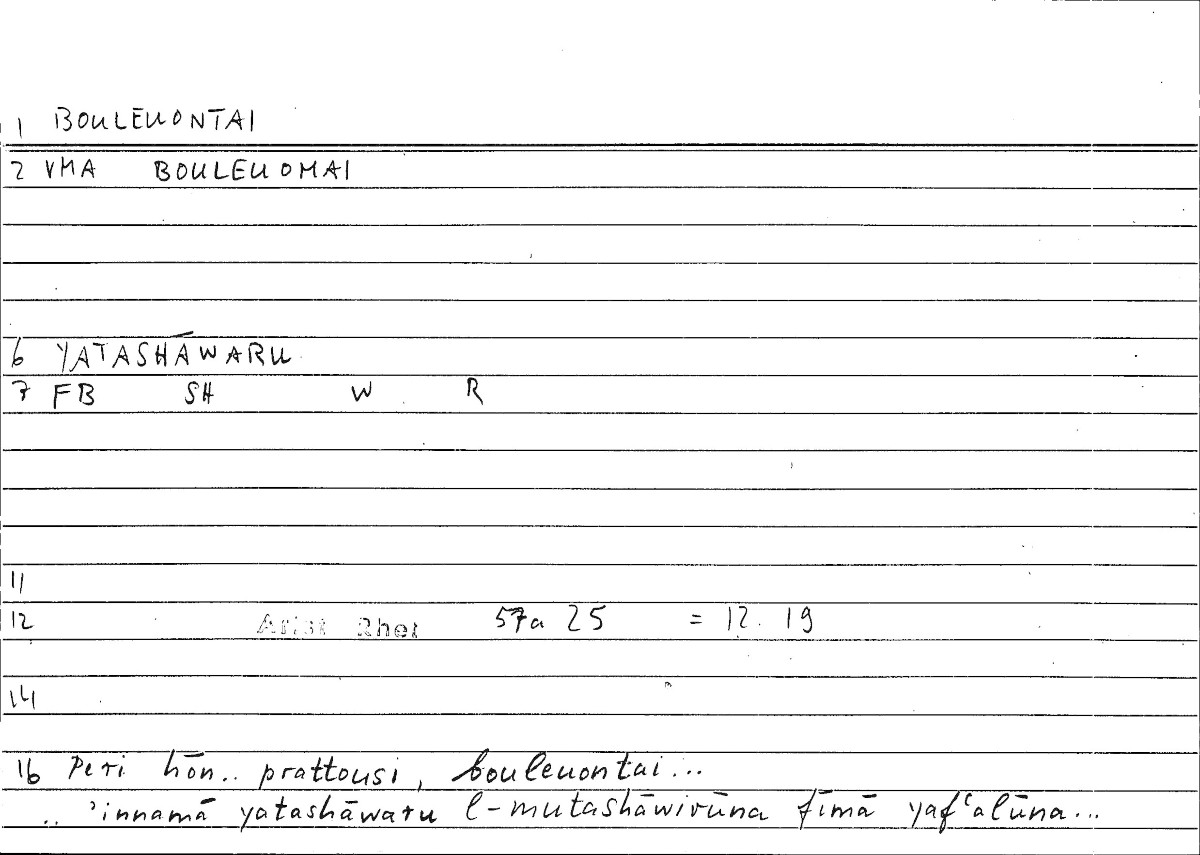 1 BOULEUONTAI
2 VMA BOULEUOMAI
6 YATASHĀWARU
7 FB SH W R
11
12 Arist Rhet 57a 25 = 12. 19
14
16 Peri hōn.. prattousi, bouleuontai...
.. 'innamā yatashāwaru l-mutashāwirūna fīmā yaf‘alūna...